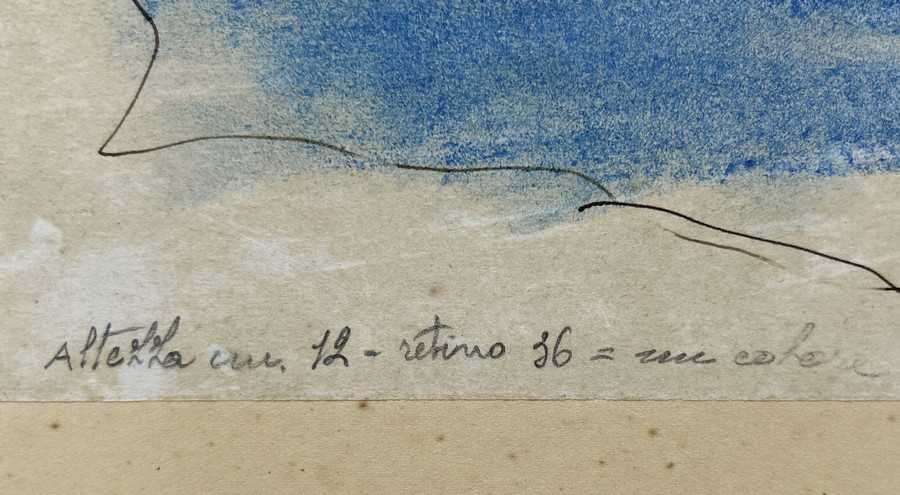 Altezza cm. 12 - retino 36 = un colore